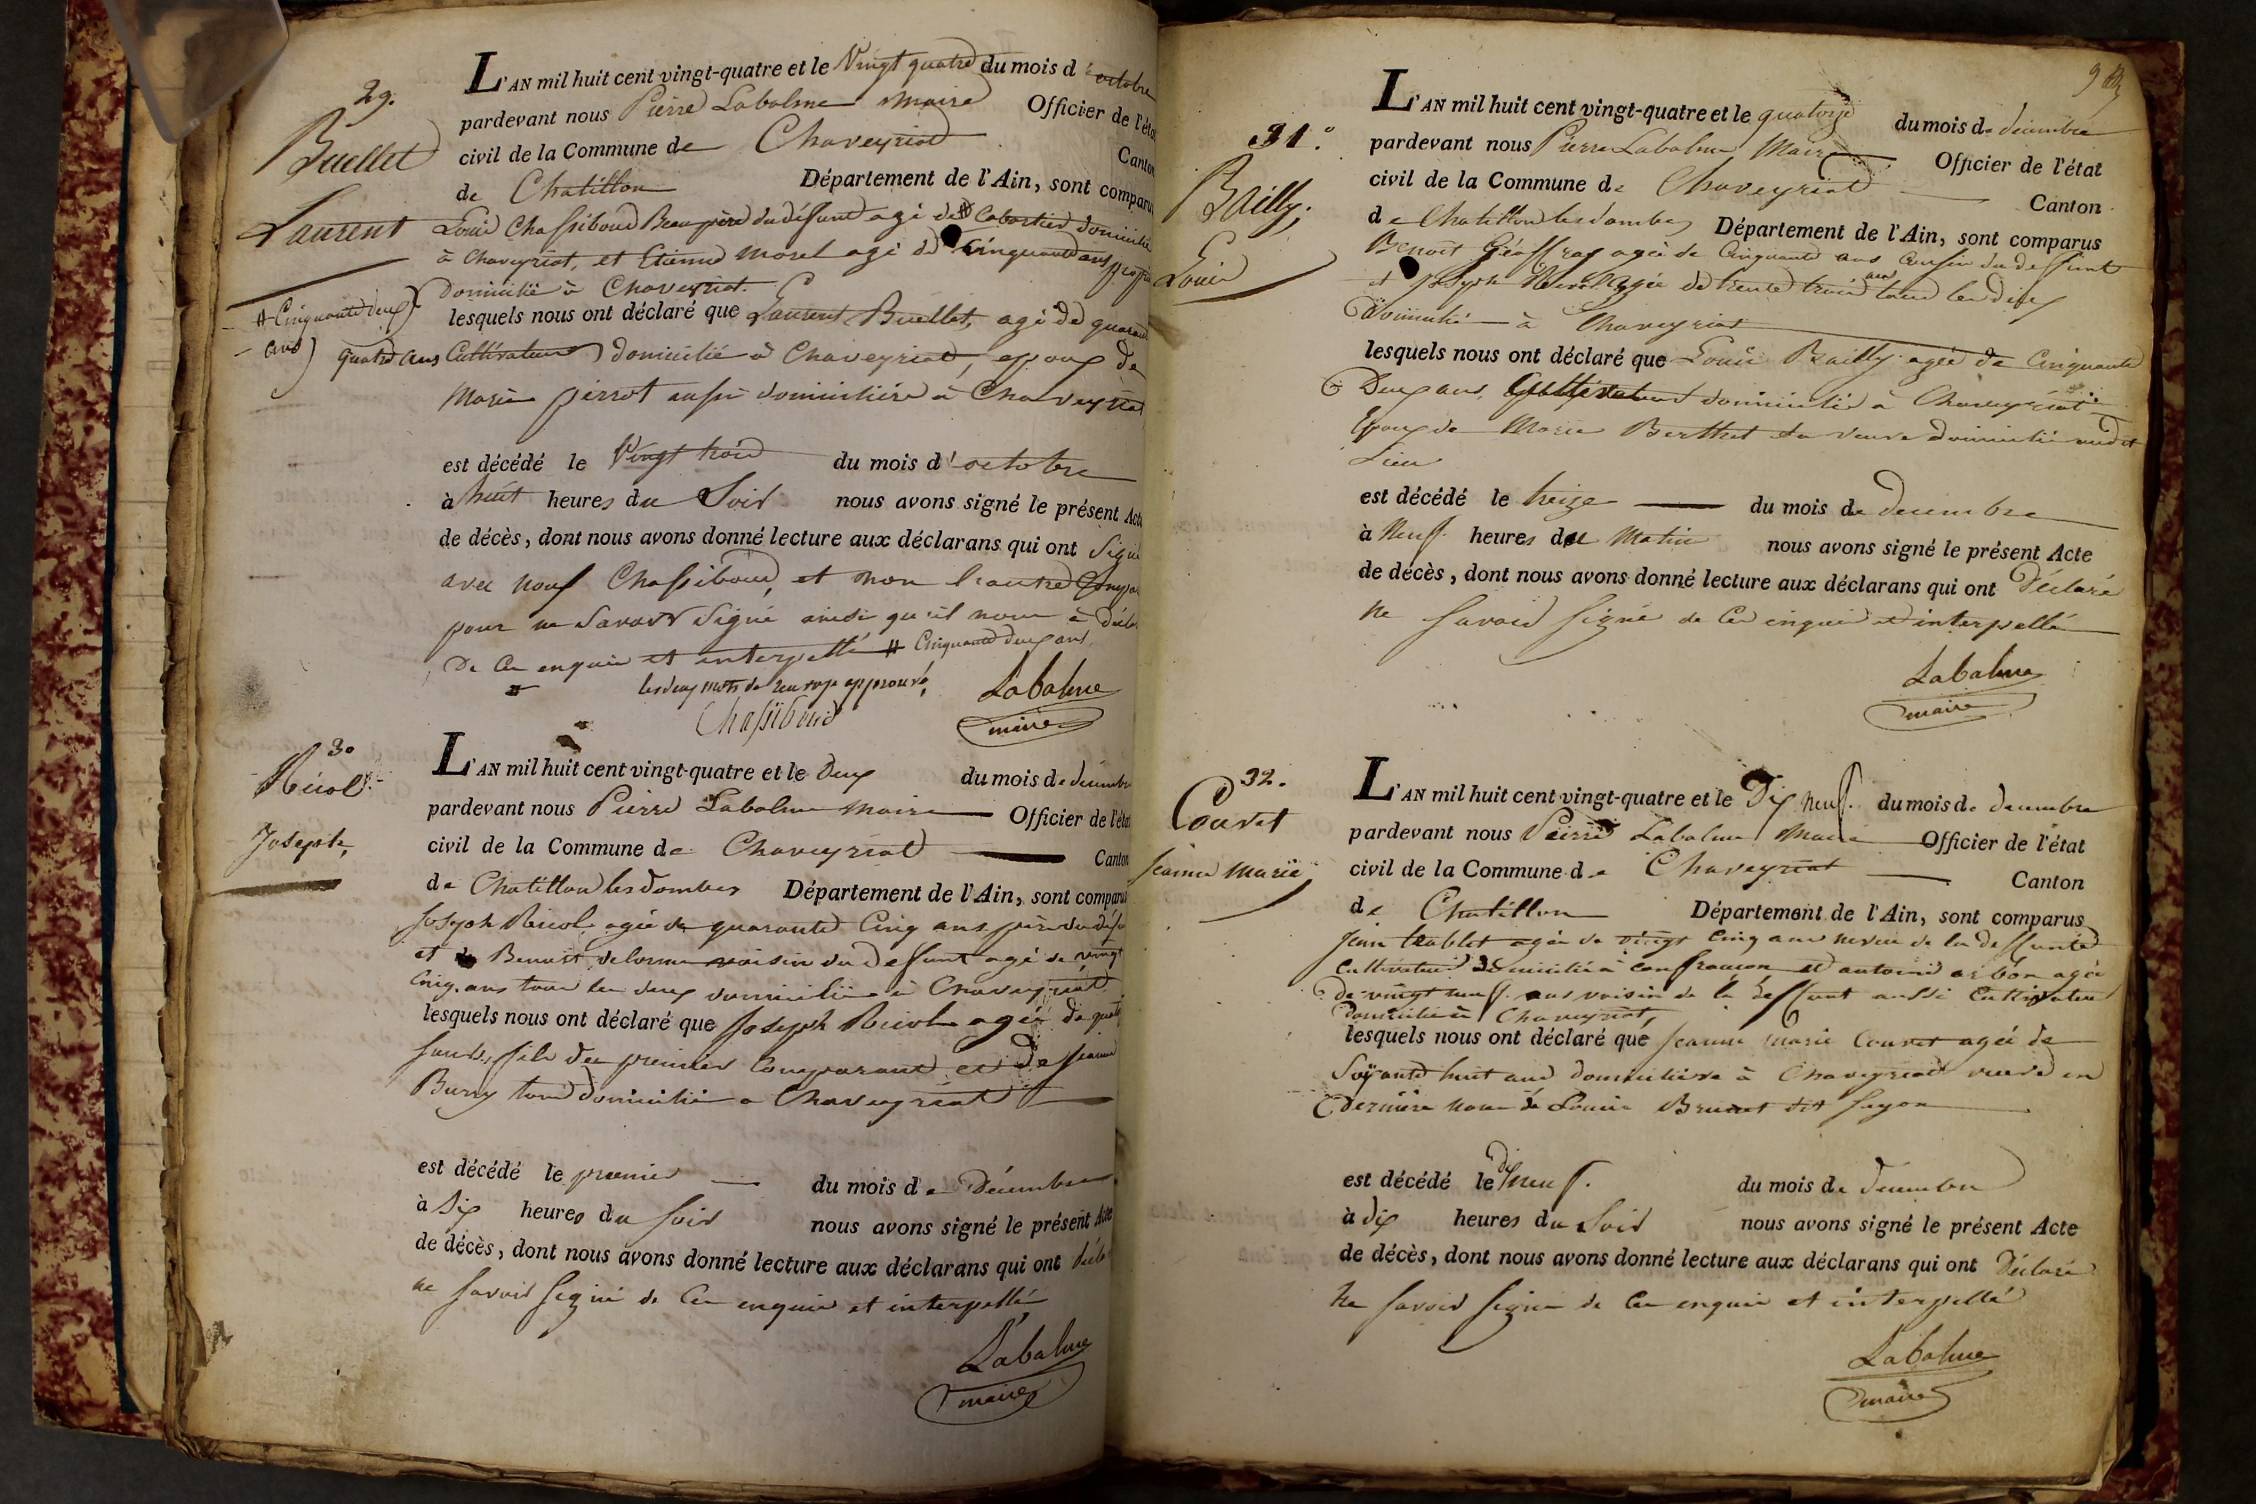 29.
Buellet
Laurent
# Cinquante deux
ans
L'AN mil huit cent vingt-quatre et le Vingt quatre du mois d'octobre
pardevant nous Pierre Labalme maire Officier de l'éta
civil de la Commune de Chaveyriat Canton
de Chatillon Département de l'Ain, sont comparu
Louis Chassiboud Beaupère du défunt agé de # Cabartier domicilié
à Chaveyriat, et Etienne morel agé de Cinquante ans
Domicilié à Chaveyriat.
lesquels nous ont déclaré que Laurent Buellet, agé de quarante
quatre ans Cultivateur domicilié à Chaveyriat, epoux de
Marie perrot aussi domiciliée à Chaveyriat
est décédé le Vingt trois du mois d'octobre
à huit heures du Soir nous avons signé le présent Acte
de décès, dont nous avons donné lecture aux déclarans qui ont Signé
avec nous Chassiboud, et non l'autre
pour ne Savoir Signé ainsi qu'il nous à
De Ce enquis et interpellé # Cinquante deux ans
les deux mots de renvoye approuvé,
Labalme
maire
Chassiboud
30
Nicol
Joseph,
L'AN mil huit cent vingt-quatre et le Deux du mois de décembre
pardevant nous Pierre Labalme maire Officier de l'éta
civil de la Commune de Chaveyriat Canton
de Chatillon les dombes Département de l'Ain, sont comparu
Joseph Nicol agée de quarante Cinq ans père du
et Benoit delorme voisin du defunt agé de vingt
Cinq ans tous les deux domicilié à Chaveyriat
lesquels nous ont déclaré que Joseph Nicol agée de
fils du premier Comparant et de jeanne
Burry tous domicilié a Chaveyriat
est décédé le premier du mois de Décembre
à Six heures du Soir nous avons signé le présent Acte
de décès, dont nous avons donné lecture aux déclarans qui ont
ne Savoir Signé de Ce enquis et interpellé
Labalme
maire
9
31.
Bailly,
Louis
L'AN mil huit cent vingt-quatre et le quatorze du mois de décembre
pardevant nous Pierre Labalme Maire Officier de l'état
civil de la Commune de Chaveyriat Canton
de Chatillon les dombes Département de l'Ain, sont comparus
Benoit Géoffray agée de Cinquante ans Cousin du deffunt
et Joseph agée de trente trois ans tous les deux
Domicilié à Chaveyriat
lesquels nous ont déclaré que Louis Bailly agée de Cinquante
Deux ans, Cultivateur domicilié à Chaveyriat
Epoux de Marie Berthet Sa veuve domicilié audit
Lieu
est décédé le treize du mois de decembre
à Neuf heures du Matin nous avons signé le présent Acte
de décès, dont nous avons donné lecture aux déclarans qui ont Déclaré
ne Savoir Signé de Ce enquis et interpellé
Labalme
maire
32.
Couvet
Jeanne Marie,
L'AN mil huit cent vingt-quatre et le Dix neuf du mois de decembre
pardevant nous Pierre Labalme Maire Officier de l'état
civil de la Commune de Chaveyriat Canton
de Chatillon Département de l'Ain, sont comparus
jean tablet agée de vingt Cinq ans neveu de la deffunte
Cultivateur domicilié à confrançon et antoine arbon agée
de vingt neuf ans voisin de la deffunt aussi Cultivateur
Domicilié à Chaveyriat,
lesquels nous ont déclaré que Jeanne Marie Couvet agée de
Soixante huit ans domiciliée à Chaveyriat veuve en
Dernière noce de Louis Brunet dit fayon
est décédé le dix neuf du mois de decembre
à dix heures du Soir nous avons signé le présent Acte
de décès, dont nous avons donné lecture aux déclarans qui ont Déclaré
Ne Savoir Signer de Ce enquis et interpellé
Labalme
maire